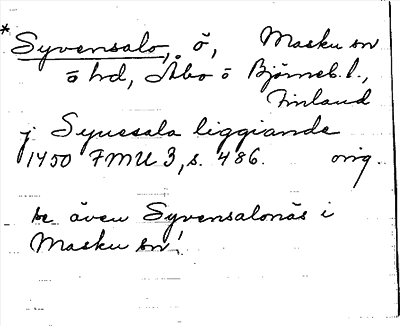 * Syvensalo, ö, Masku sn
ö hd, Åbo o Björneb. l.,
Finland
j Synesala liggiande
1450 FMU 3, s. 486. orig.
se även Syvensalonäs i
Masku sn!